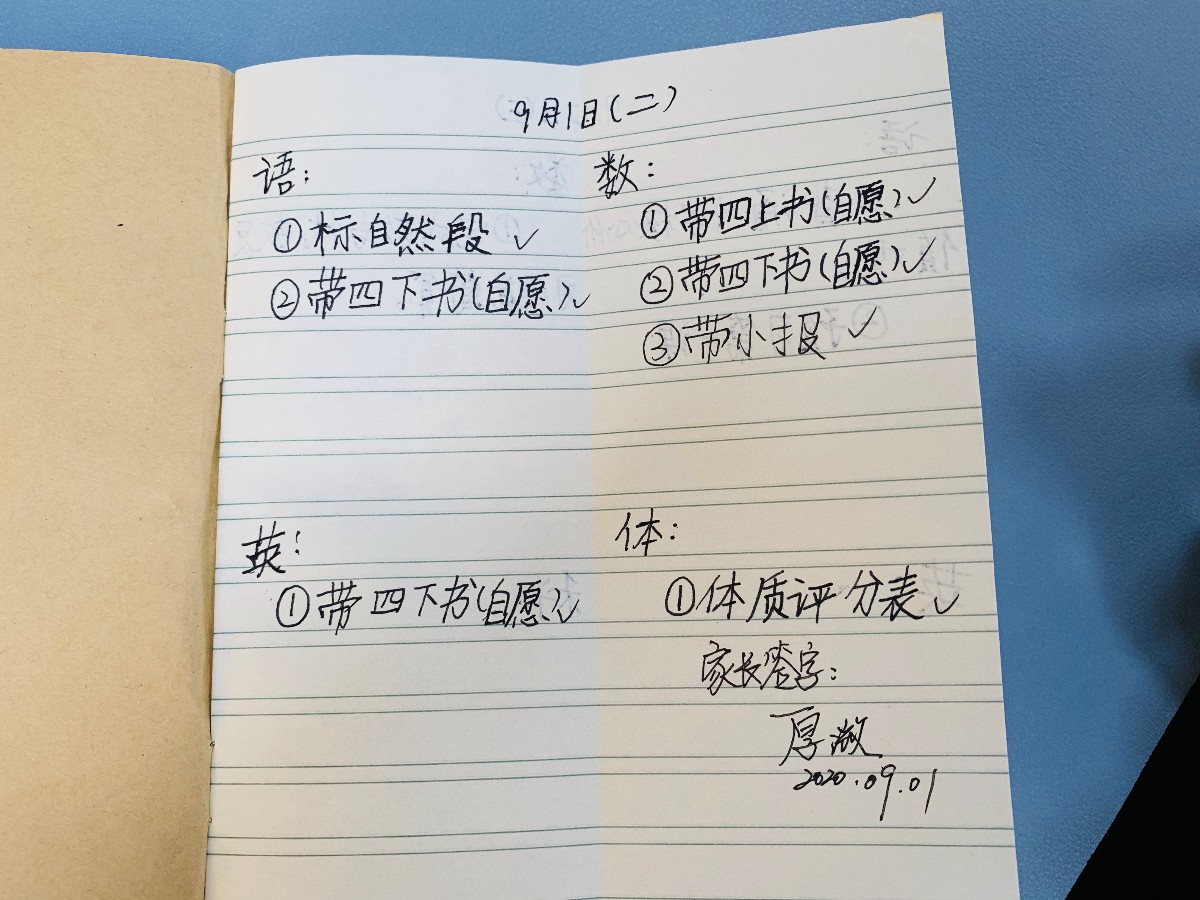 9月1日(二)
语:
①标自然段 ✓
②带四下书(自愿)✓
数:
①带四上书(自愿)✓
②带四下书(自愿)✓
③带小报 ✓
英:
①带四下书(自愿)✓
体:
①体质评分表 ✓
家长签字:
厚
2020.09.01